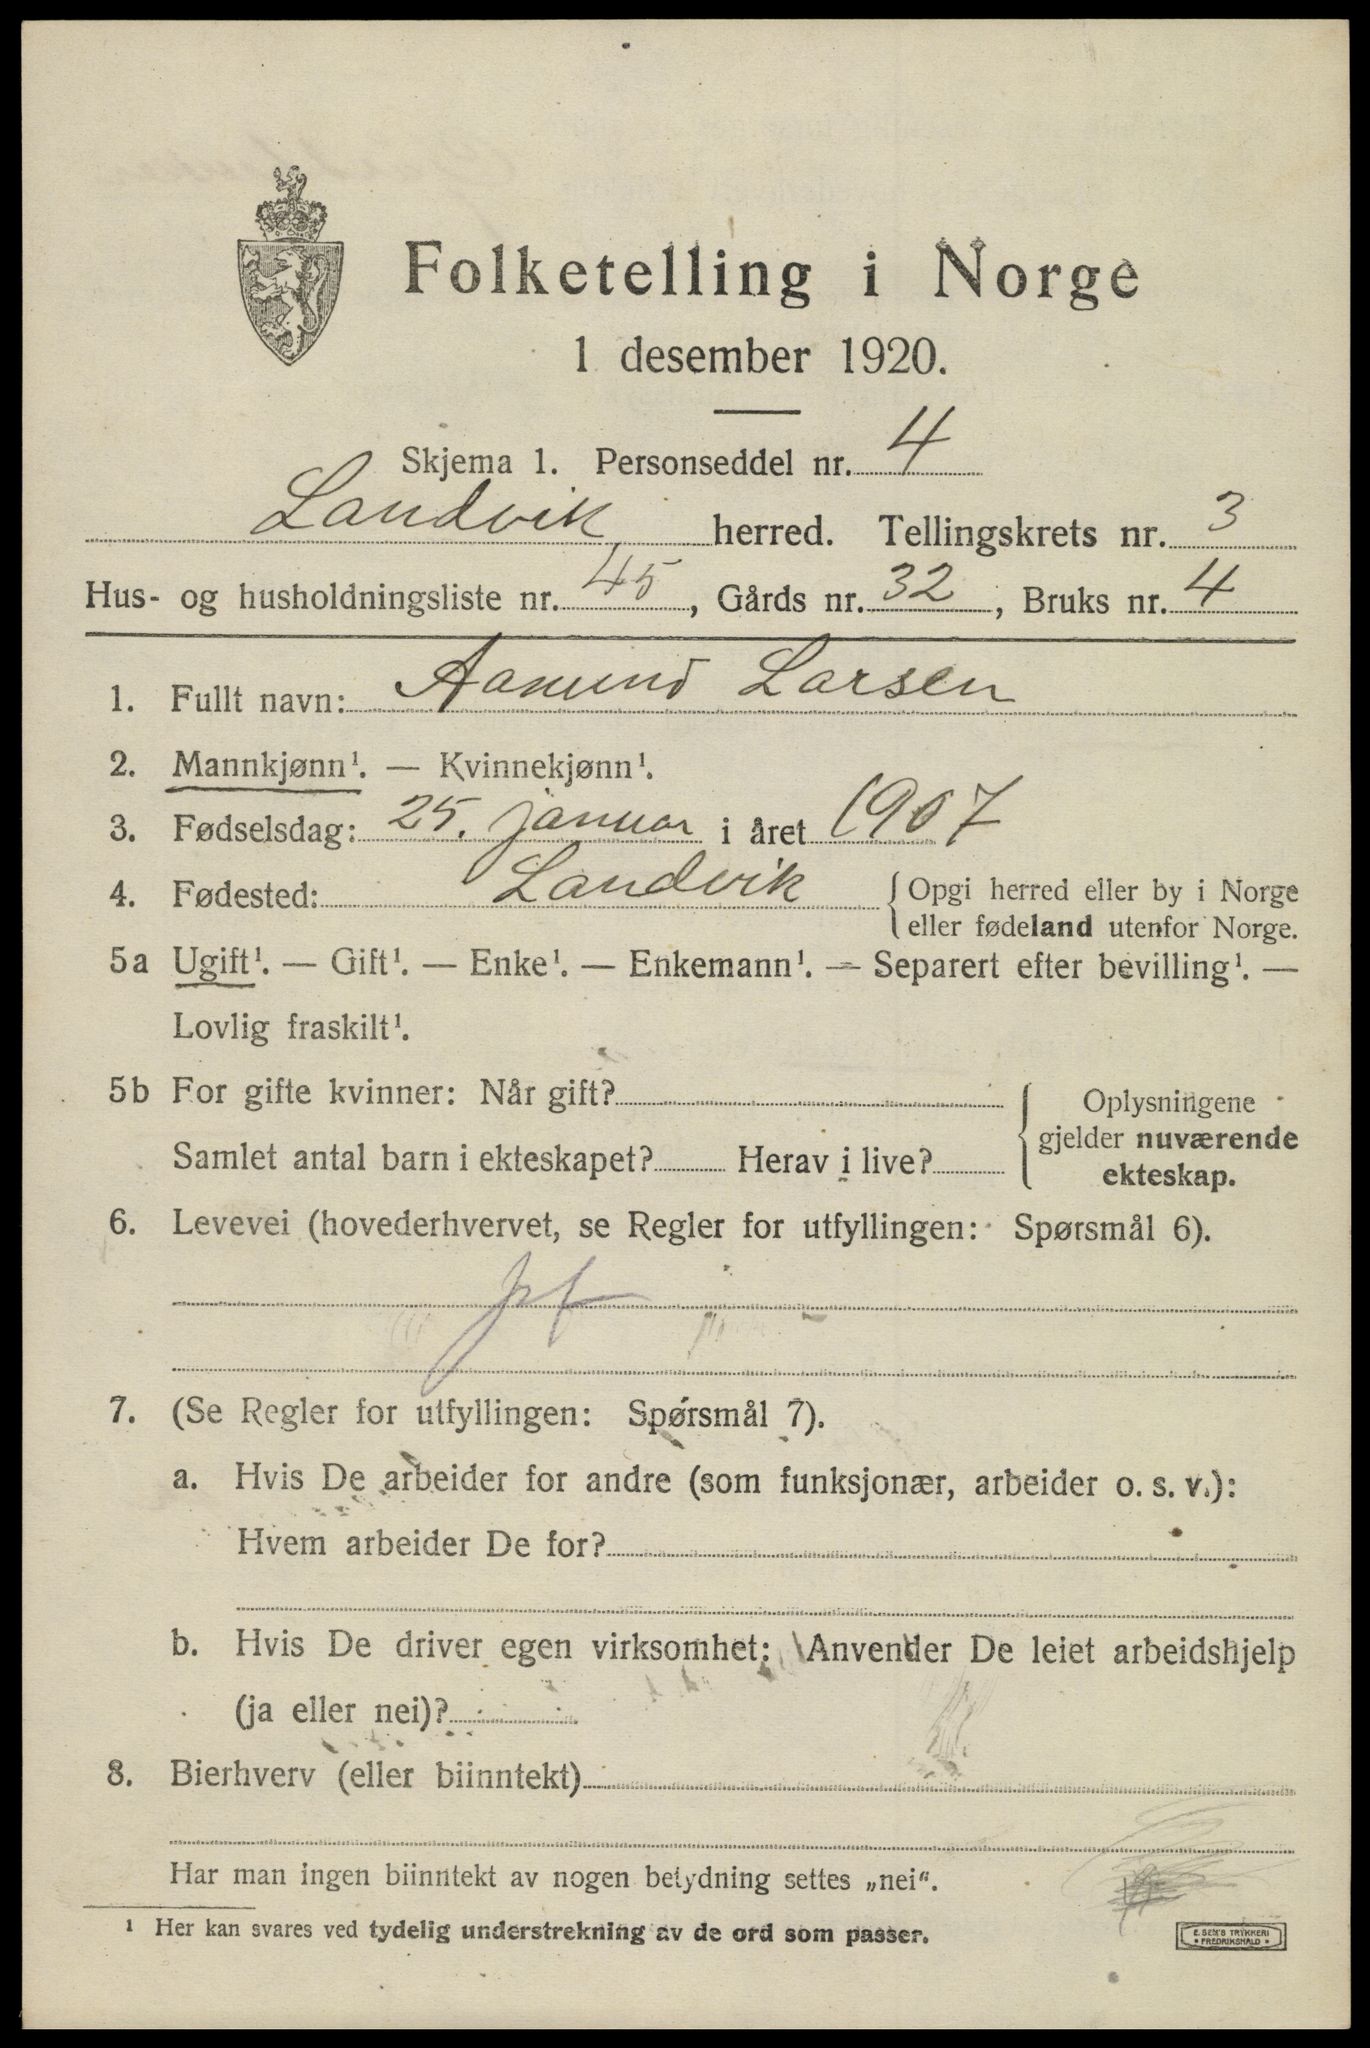 Folketelling i Norge
1 desember 1920.
Skjema 1. Personseddel nr. 4
Landvik herred. Tellingskrets nr. 3
Hus- og husholdningsliste nr. 45, Gårds nr. 32, Bruks nr. 4
1. Fullt navn: Aamund Larsen
2. Mannkjønn¹. — Kvinnekjønn¹.
3. Fødselsdag: 25. januar i året 1907
4. Fødested: Landvik {Opgi herred eller by i Norge
eller fødeland utenfor Norge.
5a Ugift¹. — Gift¹. — Enke¹. — Enkemann¹. — Separert efter bevilling¹. —
Lovlig fraskilt¹.
5b For gifte kvinner: Når gift?
Samlet antal barn i ekteskapet? Herav i live?
Oplysningene
gjelder nuværende
ekteskap.
6. Levevei (hovederhvervet, se Regler for utfyllingen: Spørsmål 6).
7. (Se Regler for utfyllingen: Spørsmål 7).
a. Hvis De arbeider for andre (som funksjonær, arbeider o. s. v.):
Hvem arbeider De for?
b. Hvis De driver egen virksomhet: Anvender De leiet arbeidshjelp
(ja eller nei)?
8. Bierhverv (eller biinntekt)
Har man ingen biinntekt av nogen betydning settes „nei“.
¹ Her kan svares ved tydelig understrekning av de ord som passer.
E. SEM'S TRYKKERI
FREDRIKSHALD